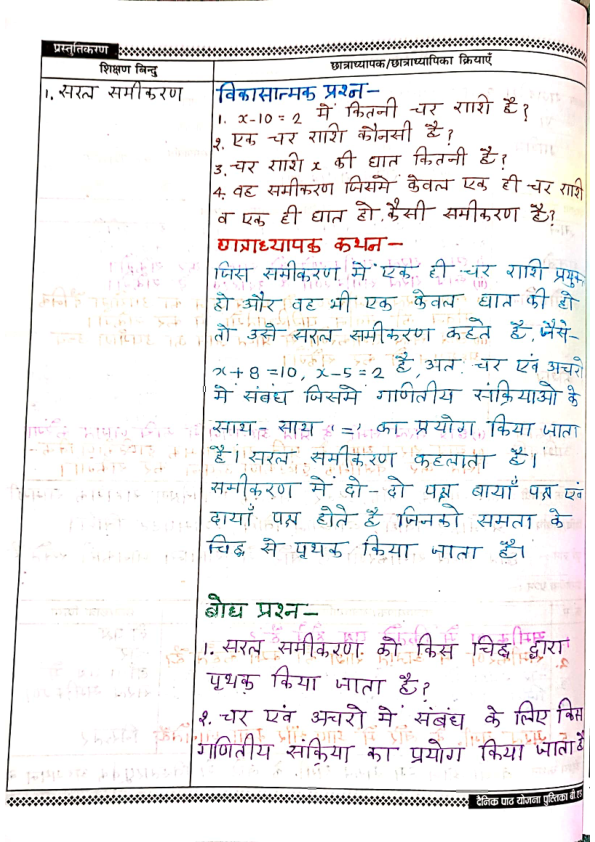 प्रस्तुतिकरण
शिक्षण बिन्दु
छात्राध्यापक/छात्राध्यापिका क्रियाएँ
1. सरल समीकरण
विकासात्मक प्रश्न-
1. x-10=2 में कितनी चर राशि है?
2. एक चर राशि कौनसी है?
3. चर राशि x की घात कितनी है?
4. वह समीकरण जिसमें केवल एक ही चर राशि
व एक ही घात हो कैसी समीकरण है?
छात्राध्यापक कथन-
जिस समीकरण में एक ही चर राशि प्रयुक्त
हो और वह भी एक केवल घात की हो
तो उसे सरल समीकरण कहते है, जैसे-
x+8=10, x-5=2 है, अत: चर एवं अचरो
में संबंध जिसमें गणितीय संक्रियाओ के
साथ-साथ '=' का प्रयोग किया जाता
है। सरल समीकरण कहलाता है।
समीकरण में दो-दो पक्ष बायाँ पक्ष एवं
दायाँ पक्ष होते है जिनको समता के
चिह्न से पृथक किया जाता है।
बोध प्रश्न-
1. सरल समीकरण को किस चिह्न द्वारा
पृथक किया जाता है?
2. चर एवं अचरो में संबंध के लिए किस
गणितीय संक्रिया का प्रयोग किया जाता है
दैनिक पाठ योजना पुस्तिका बी.एड